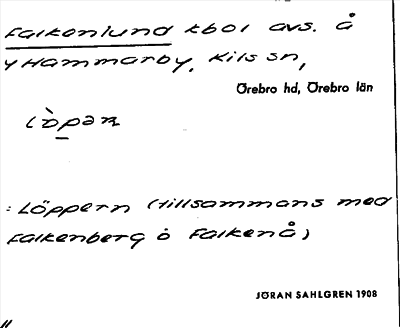 Falkenlund tbol avs. å
y Hammarby, Kils sn,
Örebro hd, Örebro län
: Löppern (tillsammans med
Falkenberg o Falkenå)
JÖRAN SAHLGREN 1908